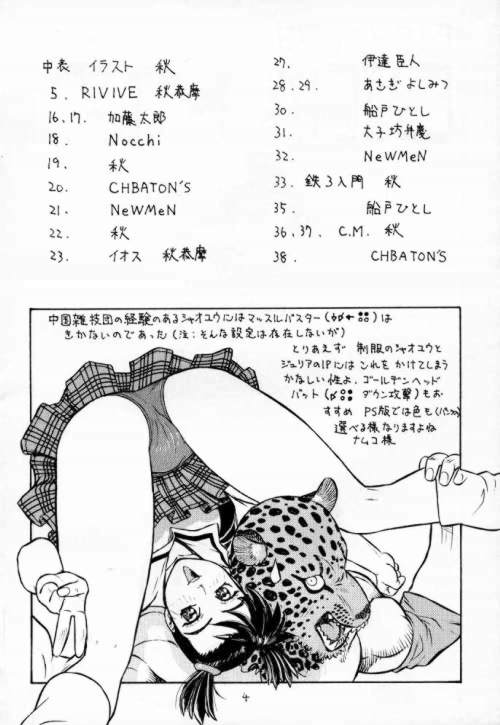 中表 イラスト 秋
5. RIVIVE 秋恭摩
16,17. 加藤太郎
18. Nocchi
19. 秋
20. CHBATON'S
21. NeWMeN
22. 秋
23. イオス 秋恭摩
27. 伊達臣人
28.29. あさぎよしみつ
30. 船戸ひとし
31. 大子坊弁慶
32. NeWMeN
33. 鉄3入門 秋
35. 船戸ひとし
36,37. C.M. 秋
38. CHBATON'S
中国雑技団の経験のあるシャオユウにはマッスルバスター()は
きかないのであった(注:そんな設定は存在しないが)
とりあえず 制服のシャオユウと
ジュリアの1Pには これを かけてしまう
かなしい性よ. ゴールデンヘッド
バット( ダウン攻撃)もお
すすめ PS版では色も(パンツの)
選べる様なりますよね
ナムコ様
4